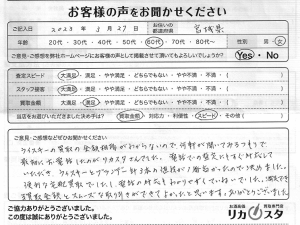 お客様の声をお聞かせください
ご記入日 2023年3月27日 お住いの都道府県 宮城県
年齢 20代・30代・40代・50代・60代・70代・80代〜 性別 男・女
ご意見・ご感想を弊社ホームページにお客様の声として掲載させて頂いてもよろしいでしょうか? Yes・No
査定スピード 大満足・満足・やや満足・どちらでもない・やや不満・不満
スタッフ接客 大満足・満足・やや満足・どちらでもない・やや不満・不満
買取金額 大満足・満足・やや満足・どちらでもない・やや不満・不満
当店をお選びいただきました決め手は? 買取金額・対応力・利便性・スピード・その他( )
ご意見・ご感想などぜひお聞かせください
ウイスキーの買取の金額相場がわからないので何軒か聞いてみようと
最初にお電話したのがリカスタさんでした。
いただき、ウイスキーとブランデー計3本の
便利な宅配買取でしたし、電話の対応もわかりやすくていねいでした。
買取金額とスムーズな取り引きができてよかったと思います。ありがとうございました。
ご協力ありがとうございました。
この度は誠にありがとうございました。
お酒買取 買取専門店
リカスタ